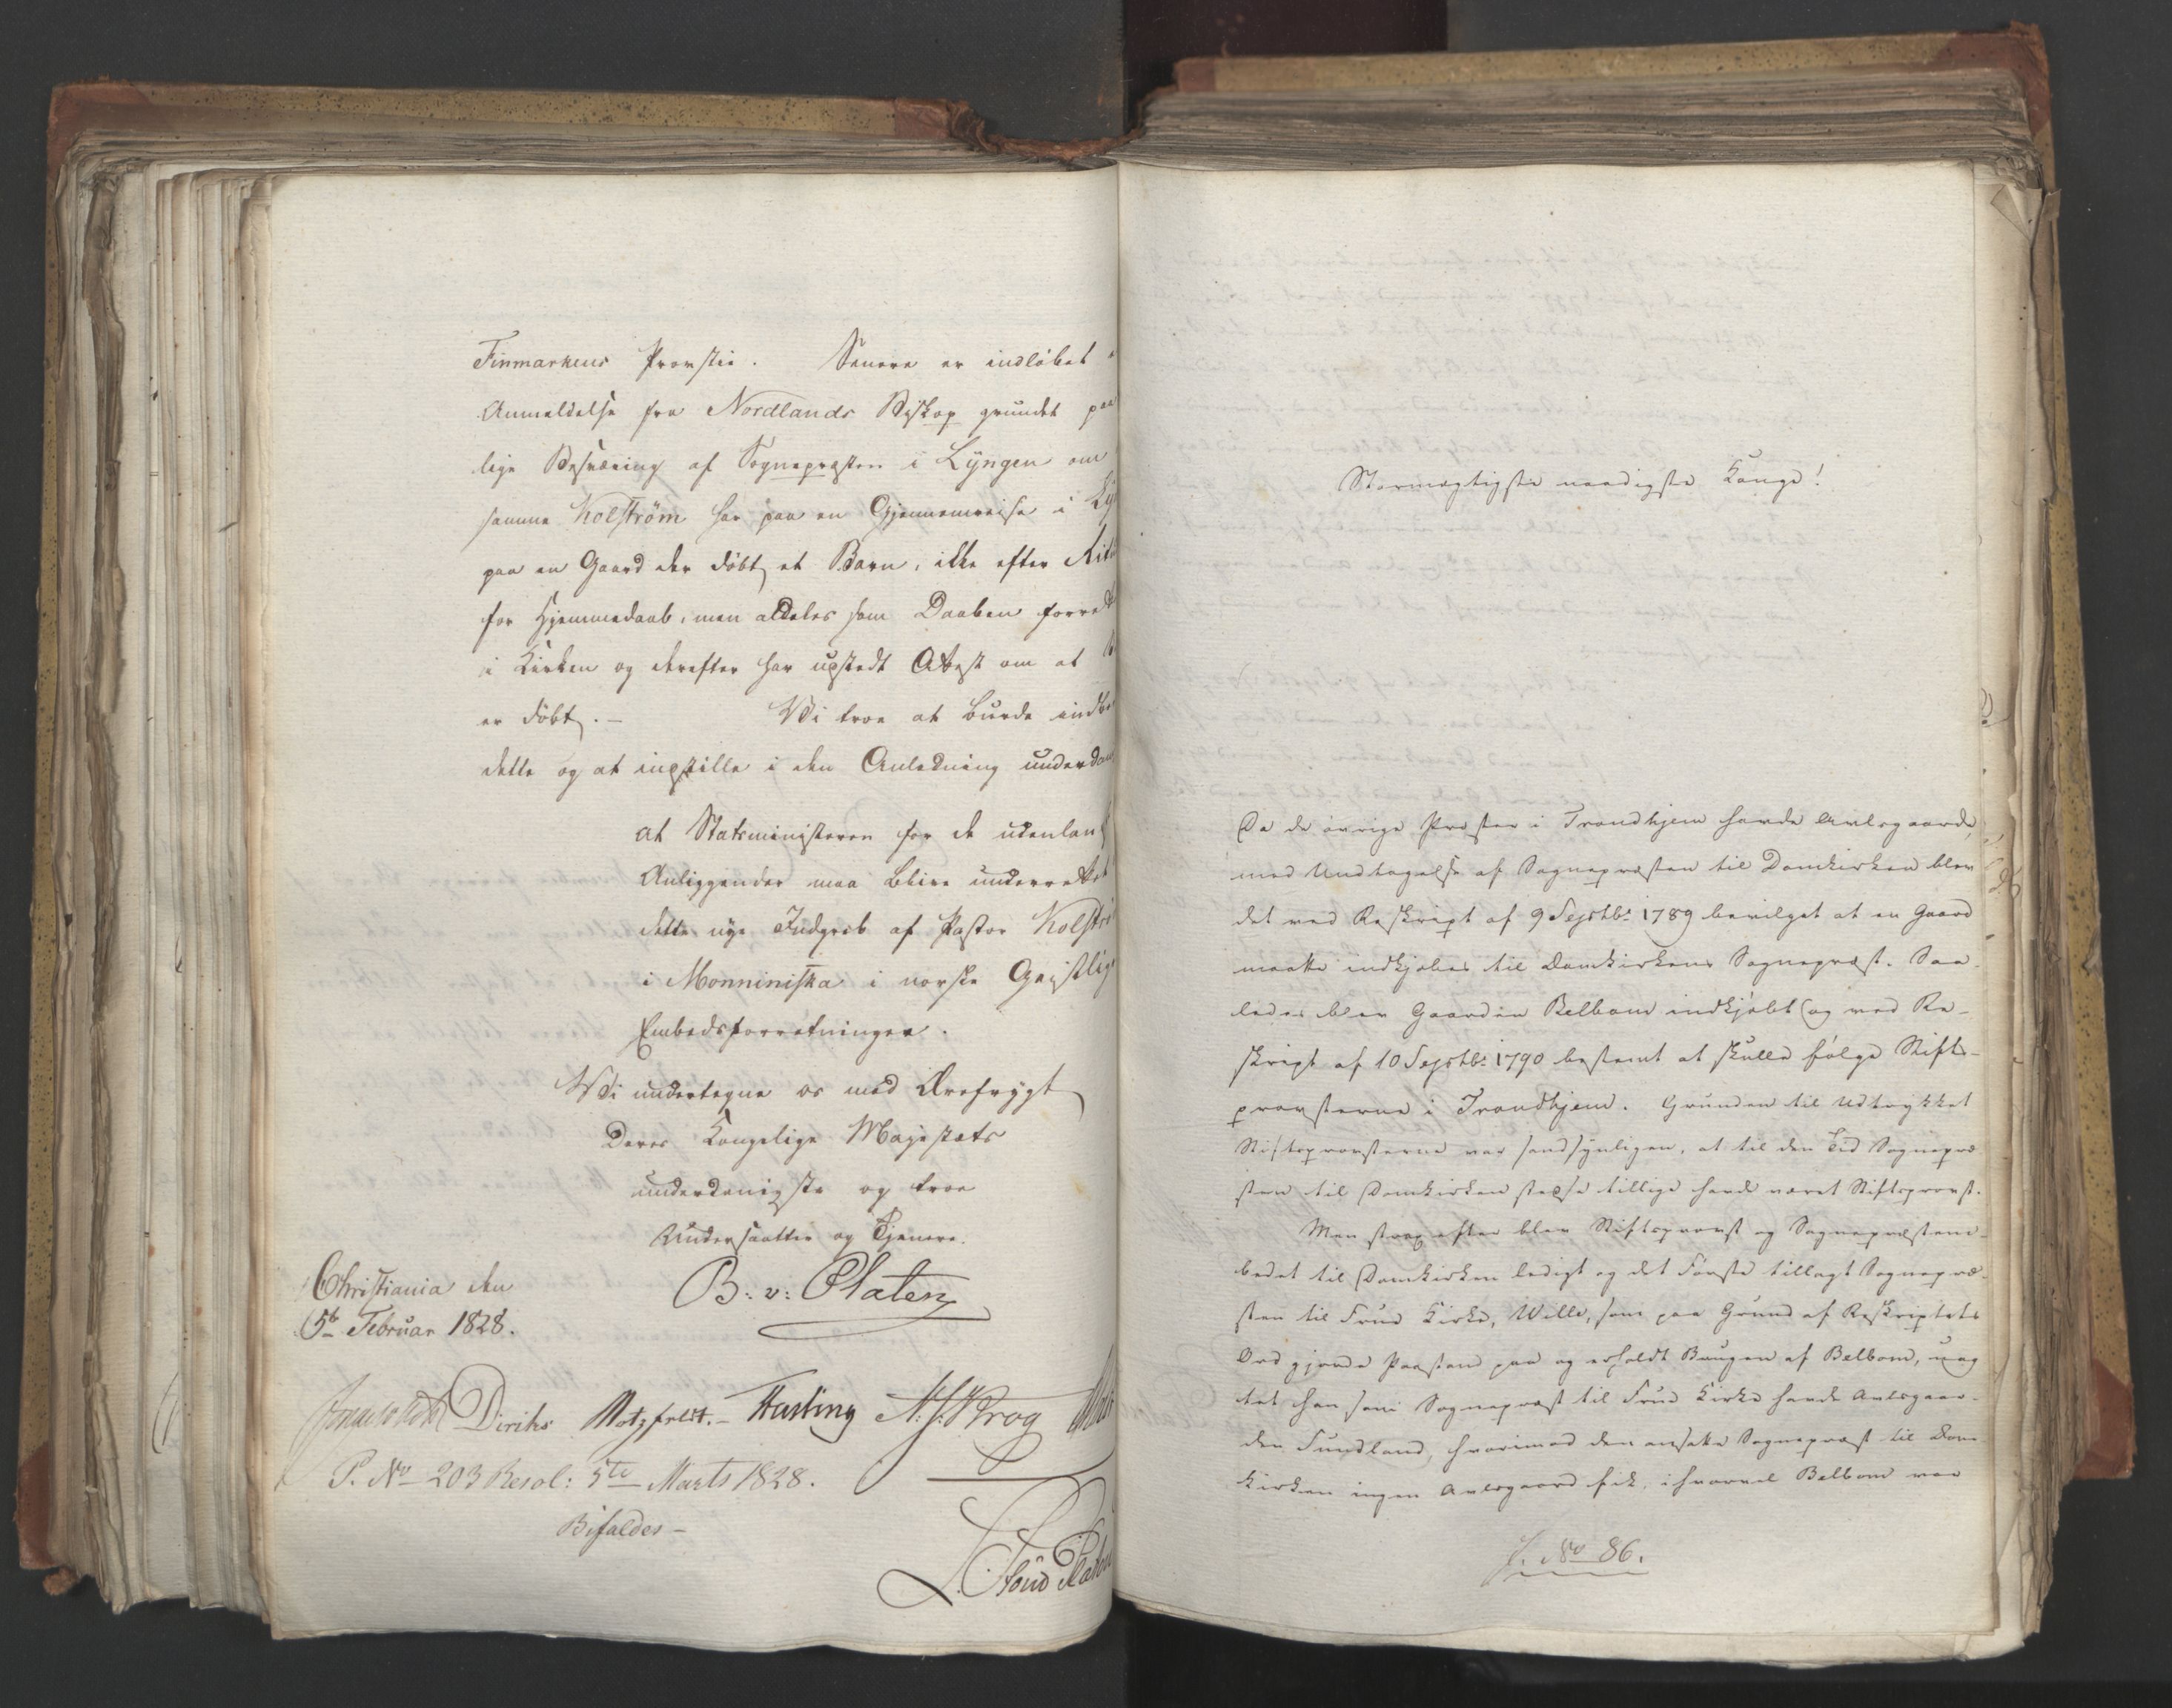 Finmarkens Provstie. Senere er indløbet
Anmeldelse fra Nordlands Biskop grundet paa
lige Besværing af Sognepræsten i Lyngen om
samme Kolström har paa en Gjennemreise i Ly
paa en Gaard der døbt et Barn, ikke efter Rit
for Hjemmedaab, men aldeles som Daaben forret
i Kirken og derefter har udstedt Attest om at
er døbt. – Vi troe at burde indbe
dette og at indstille i den Anledning underdan
at Statsministeren for de udenlan
Anliggender maa blive underrettet
dette nye Indgreb af Pastor Kolstrø
i Monniniska i norske Geistlige
Embedsforretninger.
Vi undertegne os med Ærefrygt
Deres Kongelige Majestæts
underdanigste og troe
Undersaatter og Tjenere.
Christiania den
5te Februar 1828.
B: v: Platen
Diriks Motzfeldt. – Fasting N. J. Krog
P. No 203 Resol: 5te Marts 1828.
Bifaldes –
Stormægtigste naadigste Konge!
Da de øvrige Præster i Trondhjem havde Avlsgaarde,
med Undtagelse af Sognepræsten til Domkirken blev
det ved Reskript af 9 Septbr 1789 bevilget at en Gaard
maatte indkjøbes til Domkirkens Sognepræst. Saa-
ledes blev Gaarden Belbom indkjøbt og ved Re-
skript af 10 Septbr 1790 bestemt at skulle følge Stifts-
provsterne i Trondhjem. Grunden til Udtrykket
Stiftsprovsterne var sandsynligen, at til den Tid Sognepræ
sten til Domkirken stedse tillige havde været Stiftsprovst.
Men strax efter blev Stiftsprovst og Sognepræstem-
bedet til Domkirken ledigt og det Første tillagt Sognepræ-
sten til Frue Kirke, Wille, som paa Grund af Reskriptets
Ord gjorde Paastand paa og erholdt Brugen af Belbom, uag
tet han som Sognepræst til Frue Kirke havde Avlsgaar-
den Tundland, hvorimod den ansatte Sognepræst til Dom
kirken ingen Avlsgaard fik, ihvorvel Belbom var
J. No 86.